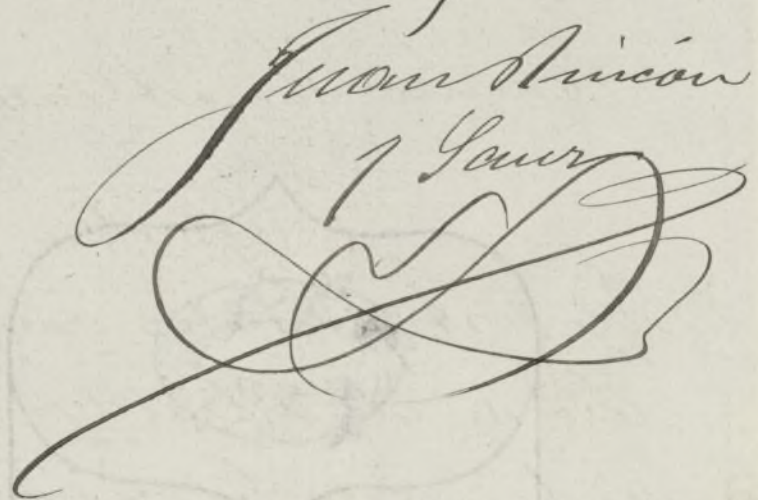 Juan Rincón
y Sanz